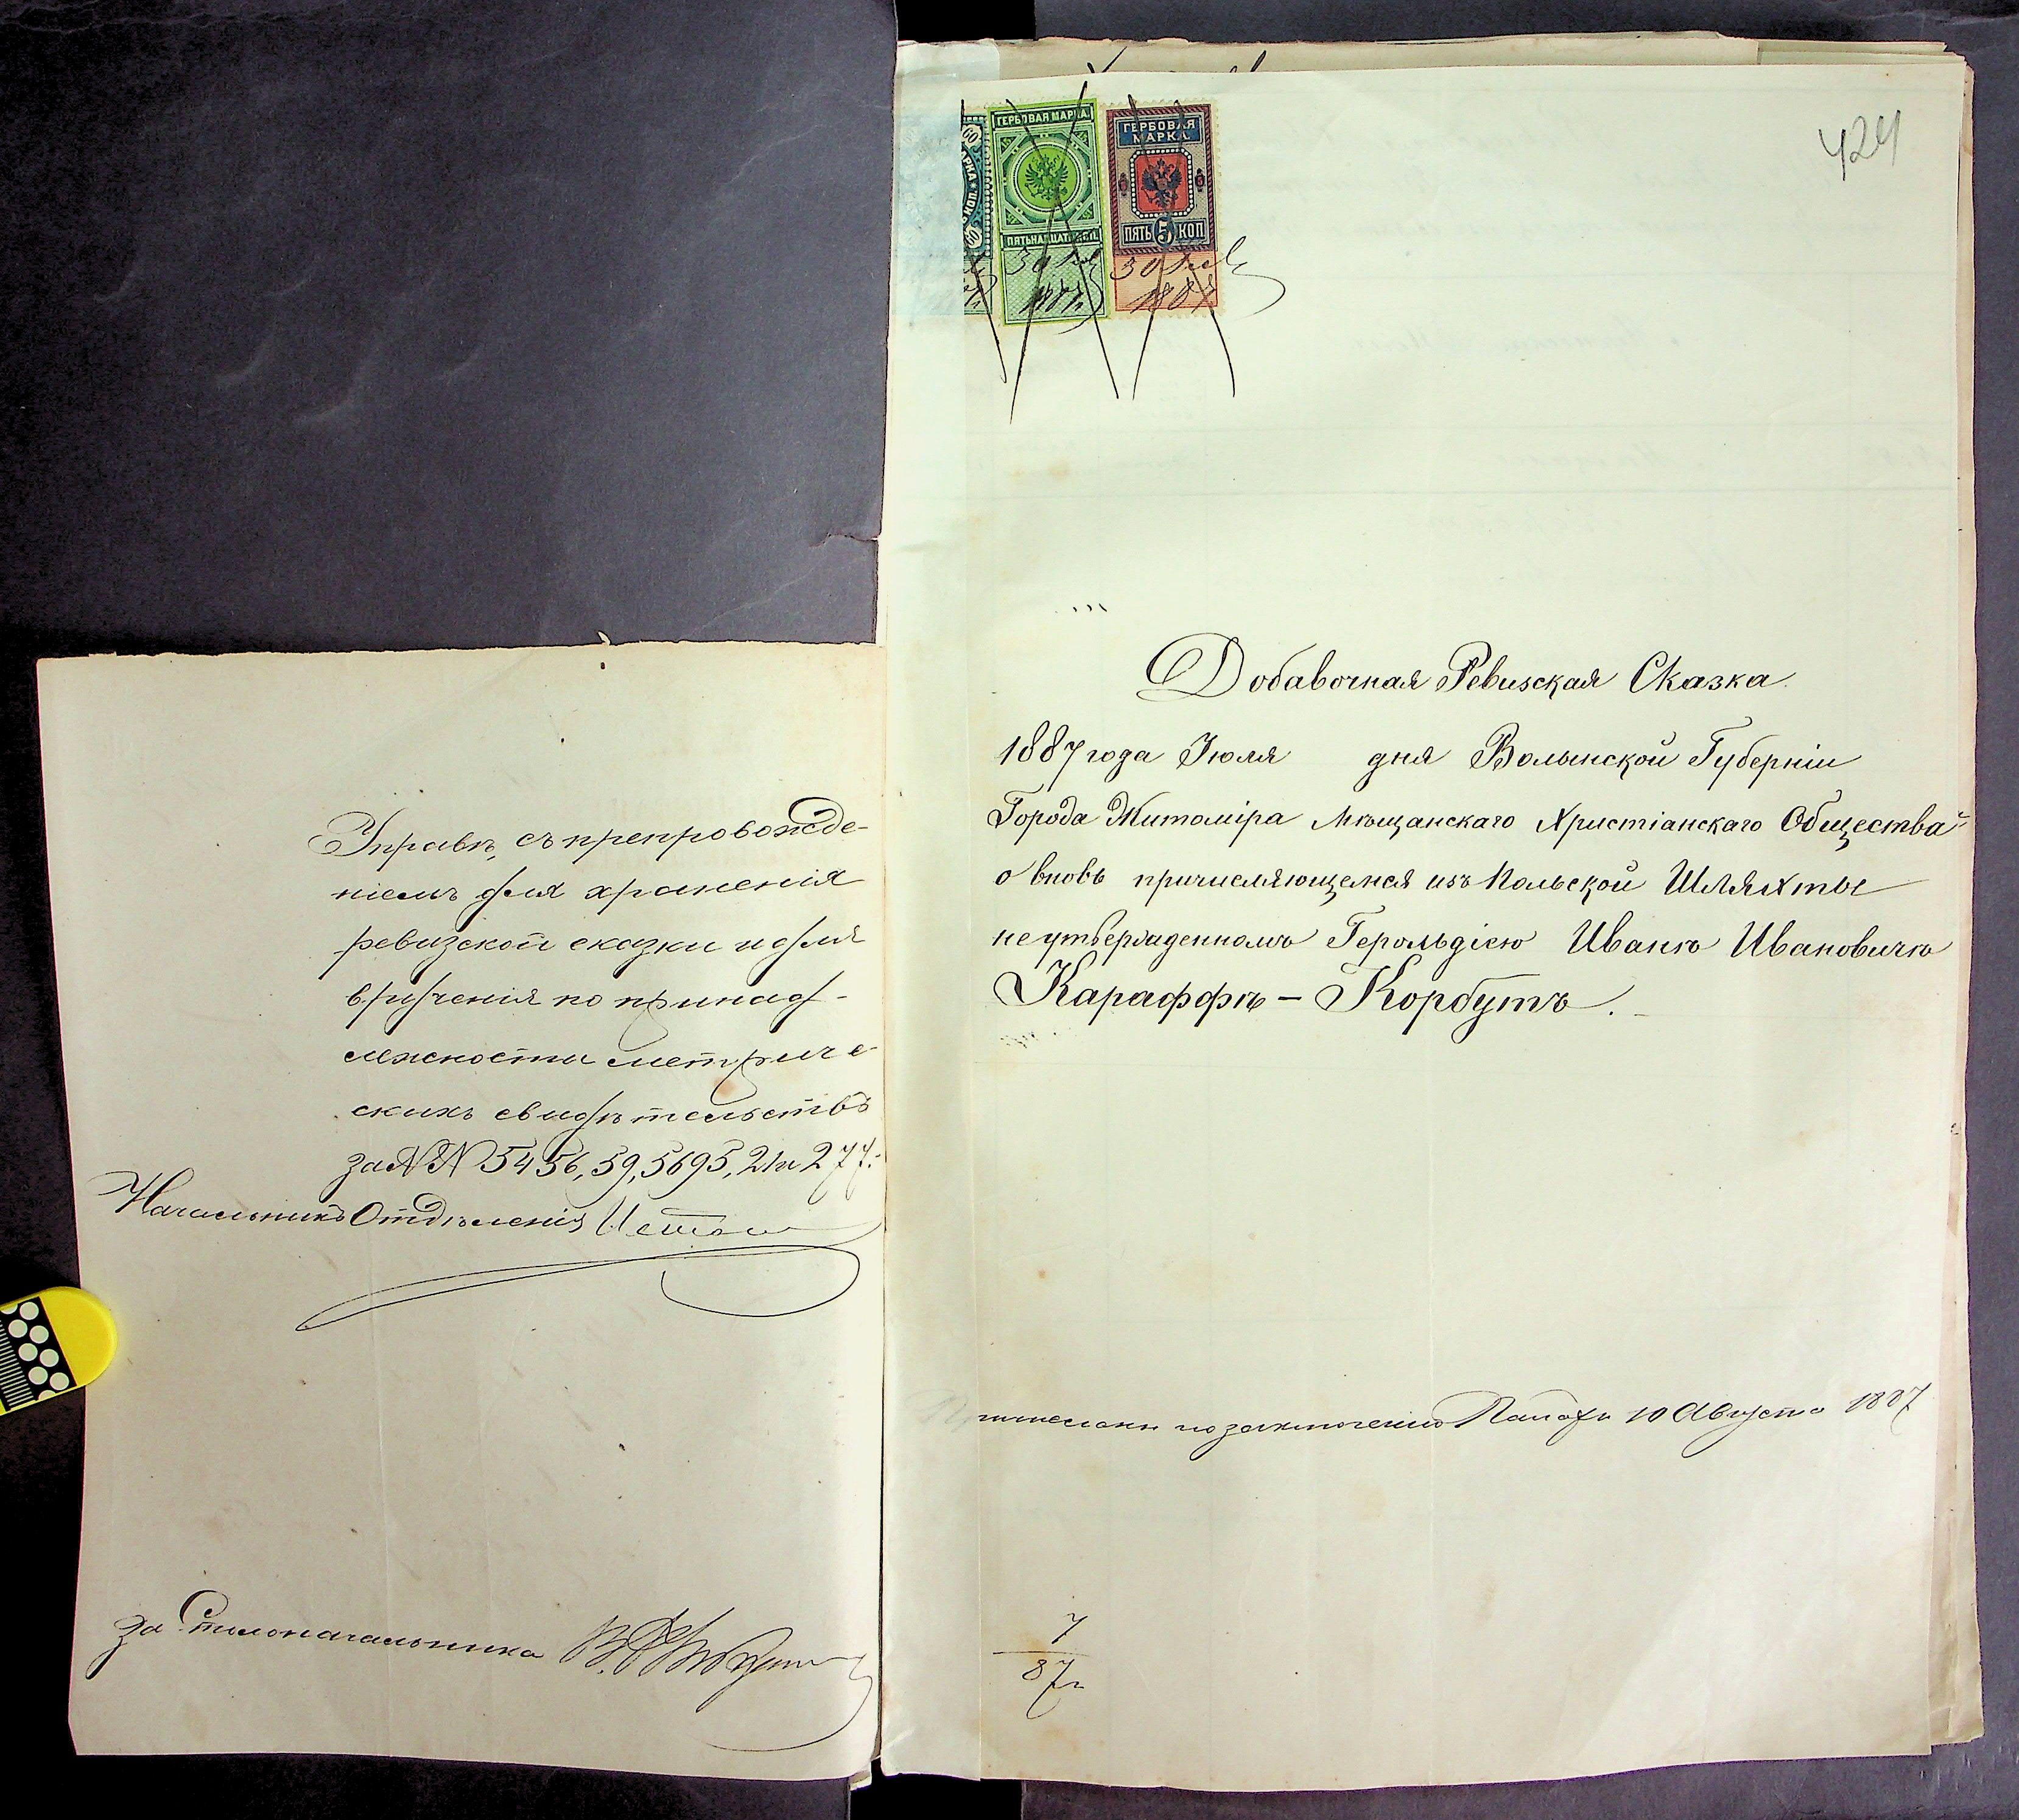 Управѣ, съ препровожде-
ніемъ для храненія
ревизской сказки и для
врученія по принад-
лежности метриче-
скихъ свидѣтельствъ
за №№ 5456, 59, 5695, 21 и 277.
Начальникъ Отдѣленія
за Столоначальника
424
60
МАРКА
КОП.
60
ГЕРБОВАЯ МАРКА.
ПЯТЬНАДЦАТЬ КОП.
30
1887
ГЕРБОВАЯ
МАРКА
5 5
ПЯТЬ 5 КОП
30
1887
Добавочная Ревизская Сказка.
1887 года Іюля дня Волынской Губерніи
Города Житоміра Мѣщанскаго Христіанскаго Общества
о вновь причисляющемся изъ Польской Шляхты
неутвержденномъ Герольдіею Иванѣ Ивановичѣ
Караффѣ-Корбутъ.
по заключенію Палаты 10 Августа 1887
7
87 г.